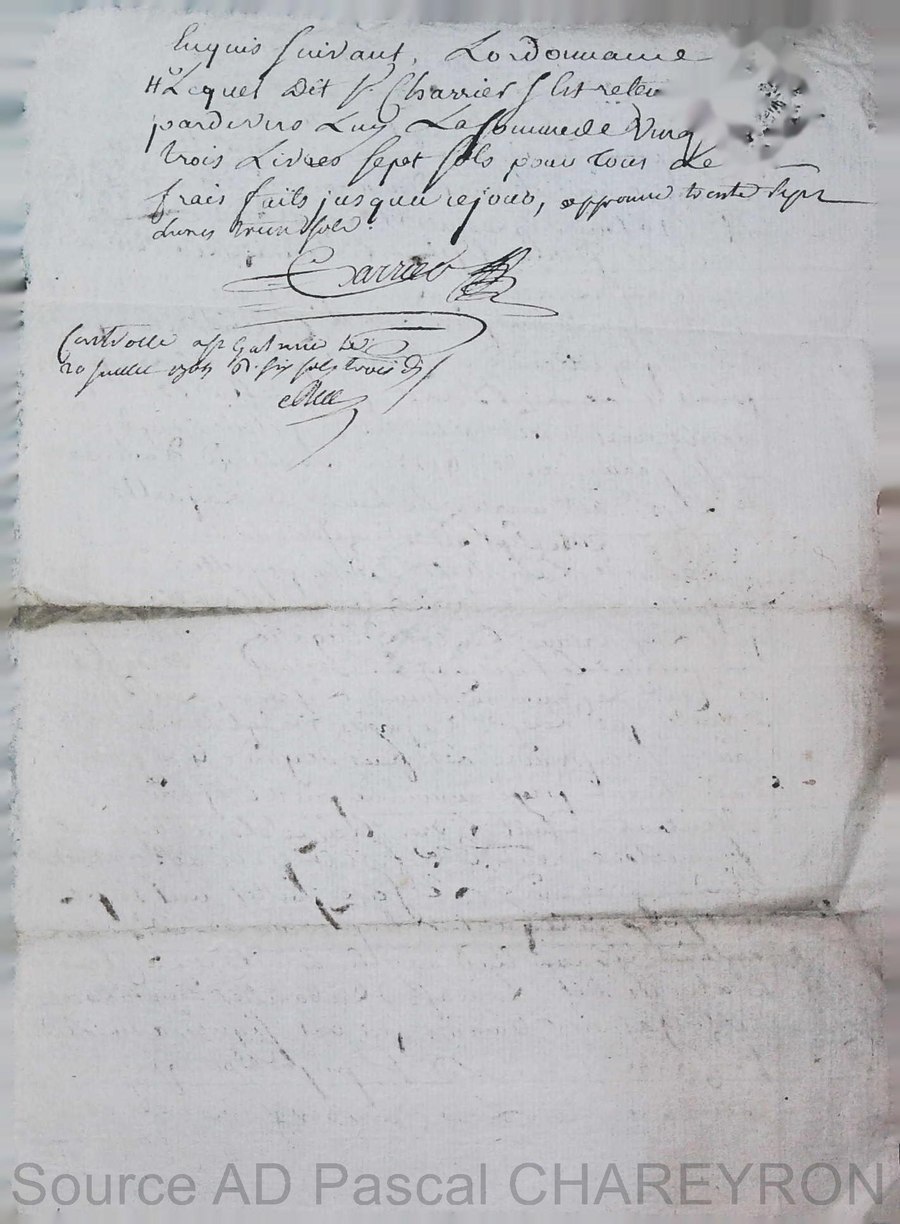 Enquis suivant, Lordonnance
Lequel dit Sr Charrier Sest reten
pardevers Luy La somme de Vingt
trois Livres sept sols pour tous Le
frais faits jusqua ce jour, approuve trente sept
livres un sols
Carrier
Controlle a St Galmier Le
20 Juillet six sols trois d
Source AD Pascal CHAREYRON